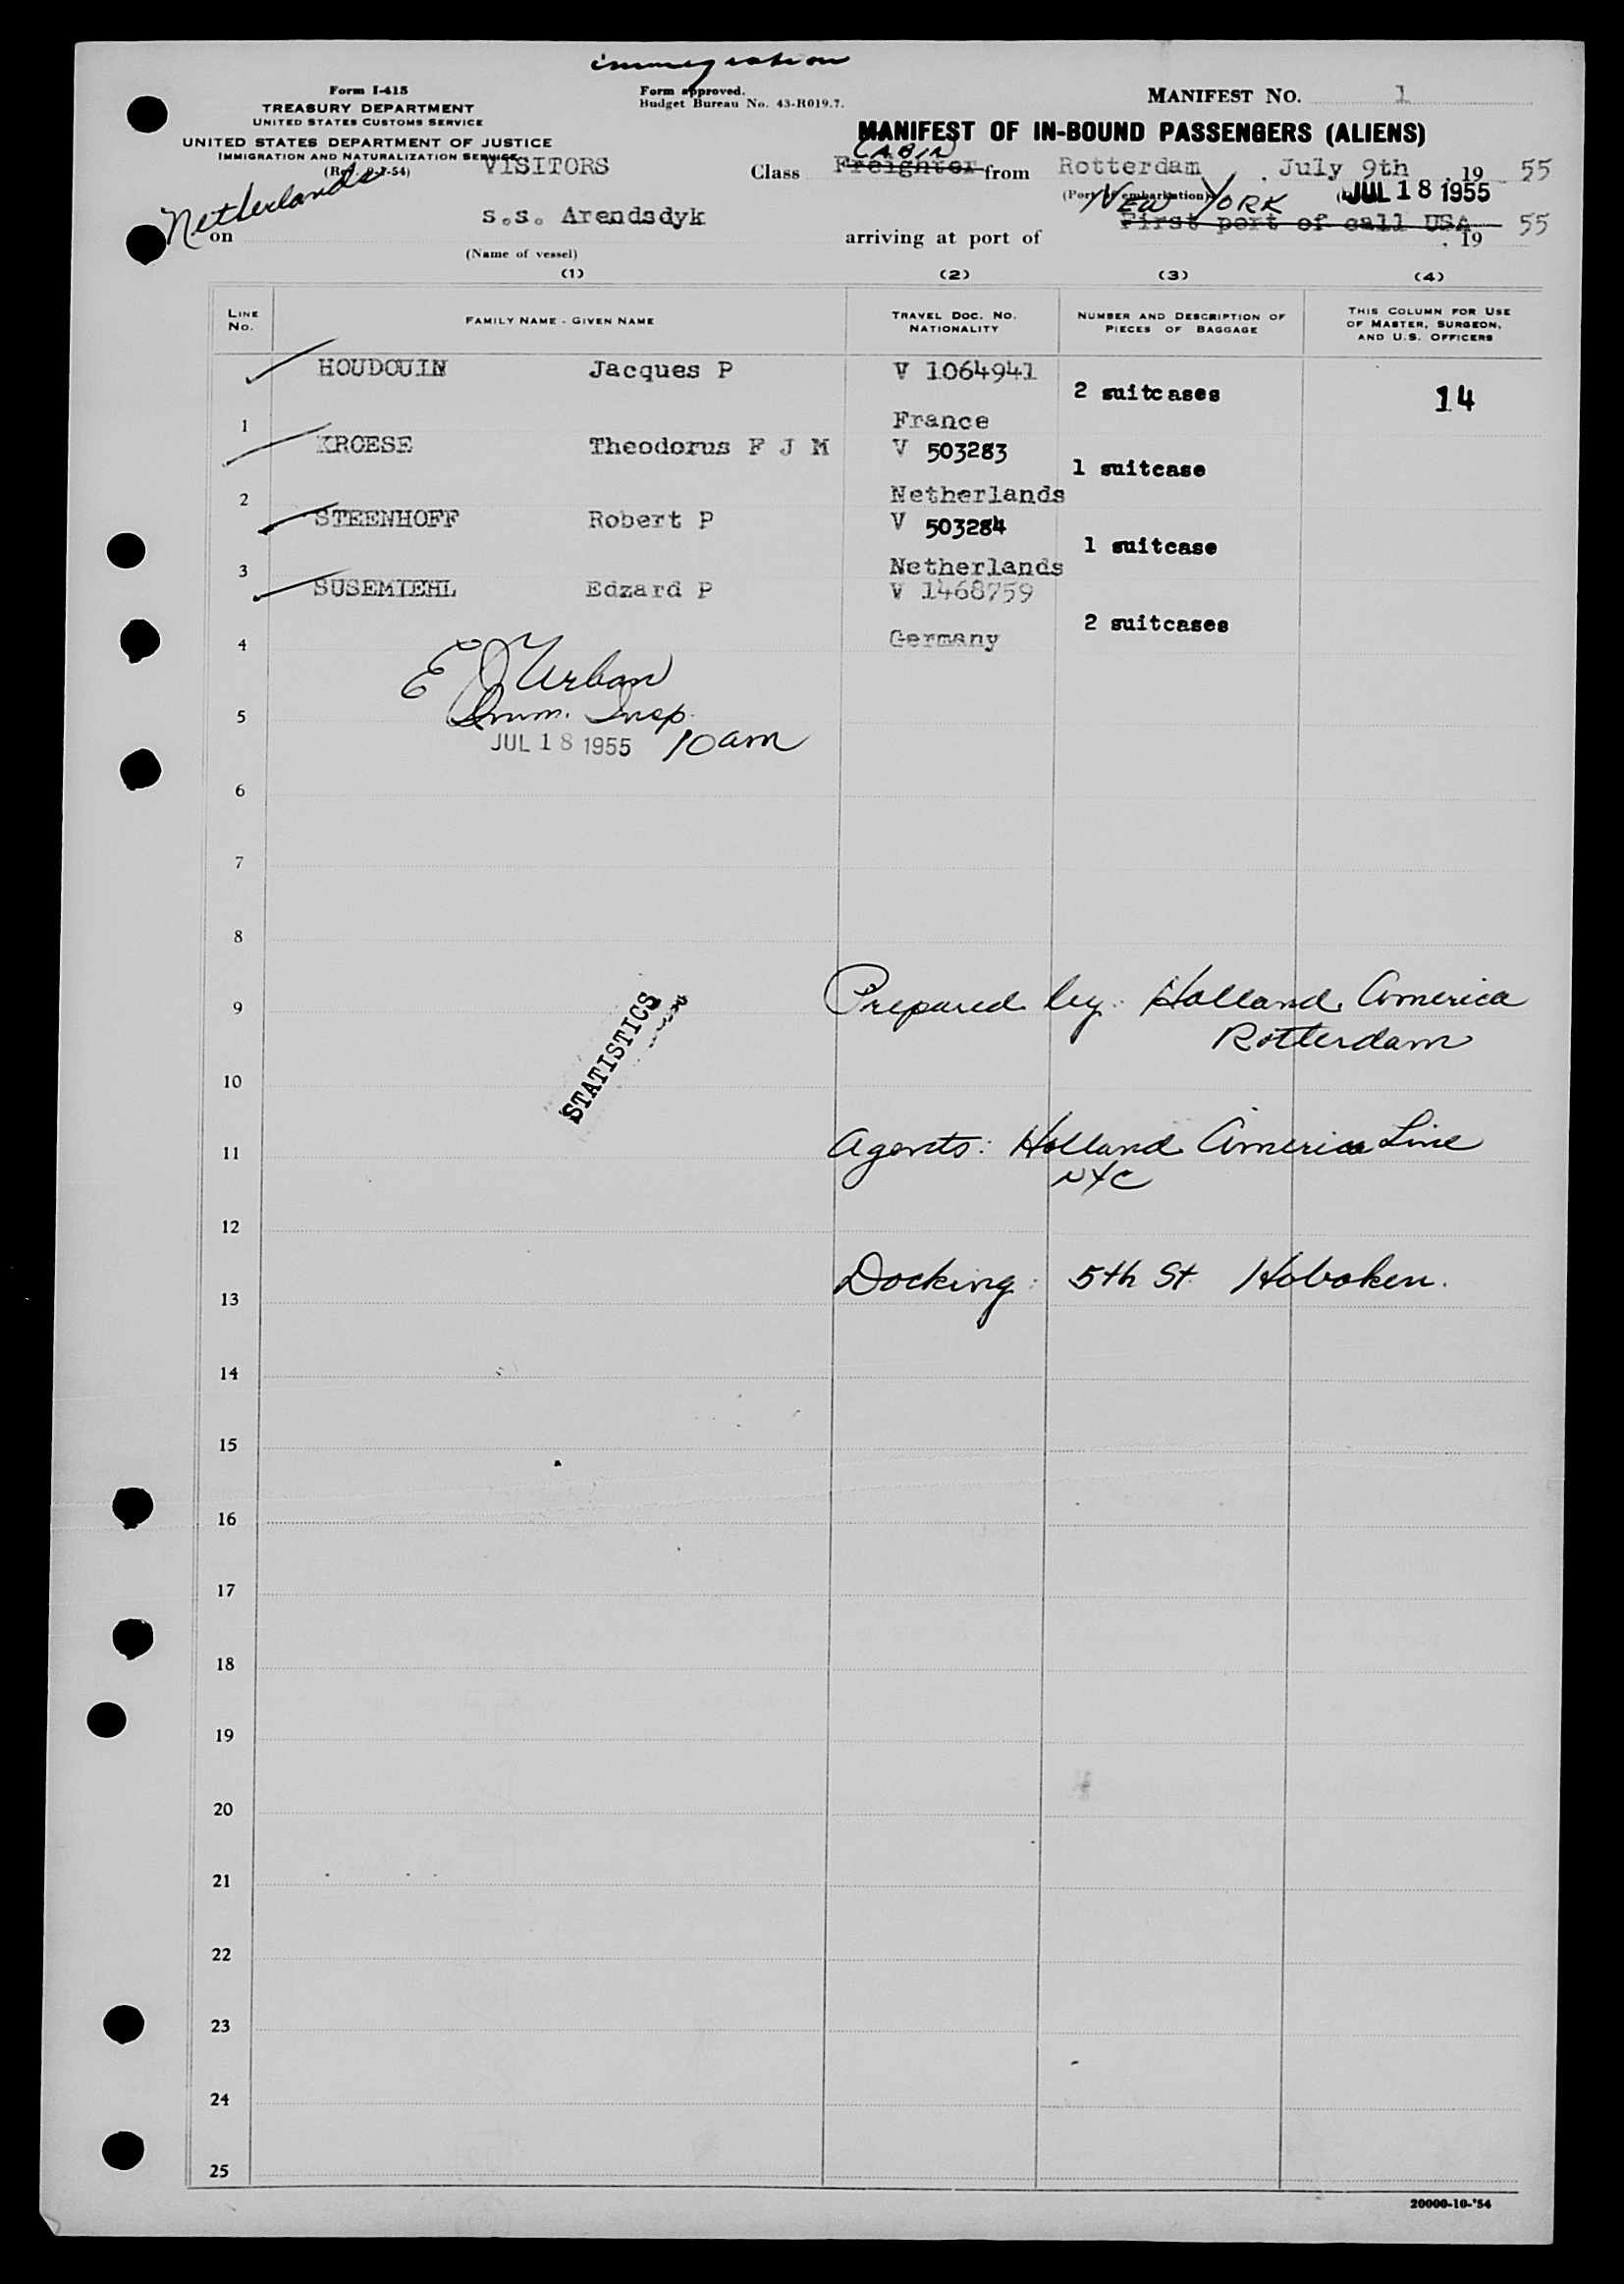 immigration
Form I-415
TREASURY DEPARTMENT
UNITED STATES CUSTOMS SERVICE
UNITED STATES DEPARTMENT OF JUSTICE
IMMIGRATION AND NATURALIZATION SERVICE
(Rev. 9-7-54)
Form approved.
Budget Bureau No. 43-R019.7.
MANIFEST NO. 1
MANIFEST OF IN-BOUND PASSENGERS (ALIENS)
CABIN
VISITORS Class Freighter from Rotterdam, July 9th, 19 55
(Port of embarkation)
NEW YORK JUL 18 1955
Netherlands
on s.s. Arendsdyk arriving at port of First port of call USA, 19 55
(Name of vessel)
(1) (2) (3) (4)
LINE NO. FAMILY NAME - GIVEN NAME TRAVEL DOC. NO. NATIONALITY NUMBER AND DESCRIPTION OF PIECES OF BAGGAGE THIS COLUMN FOR USE OF MASTER, SURGEON, AND U.S. OFFICERS
HOUDOUIN Jacques P V 1064941
2 suitcases 14
1 France
KROESE Theodorus F J M V 503283
1 suitcase
2 Netherlands
STEENHOFF Robert P V 503284
1 suitcase
3 Netherlands
SUSEMIEHL Edzard P V 1468759
2 suitcases
4 Germany
E J Urban
5 Imm. Insp.
JUL 18 1955 10am
6
7
8
9 Prepared by: Holland America
Rotterdam
STATISTICS
10
11 Agents: Holland America Line
NYC
12
13 Docking: 5th St. Hoboken.
14
15
16
17
18
19
20
21
22
23
24
25
20000-10-'54